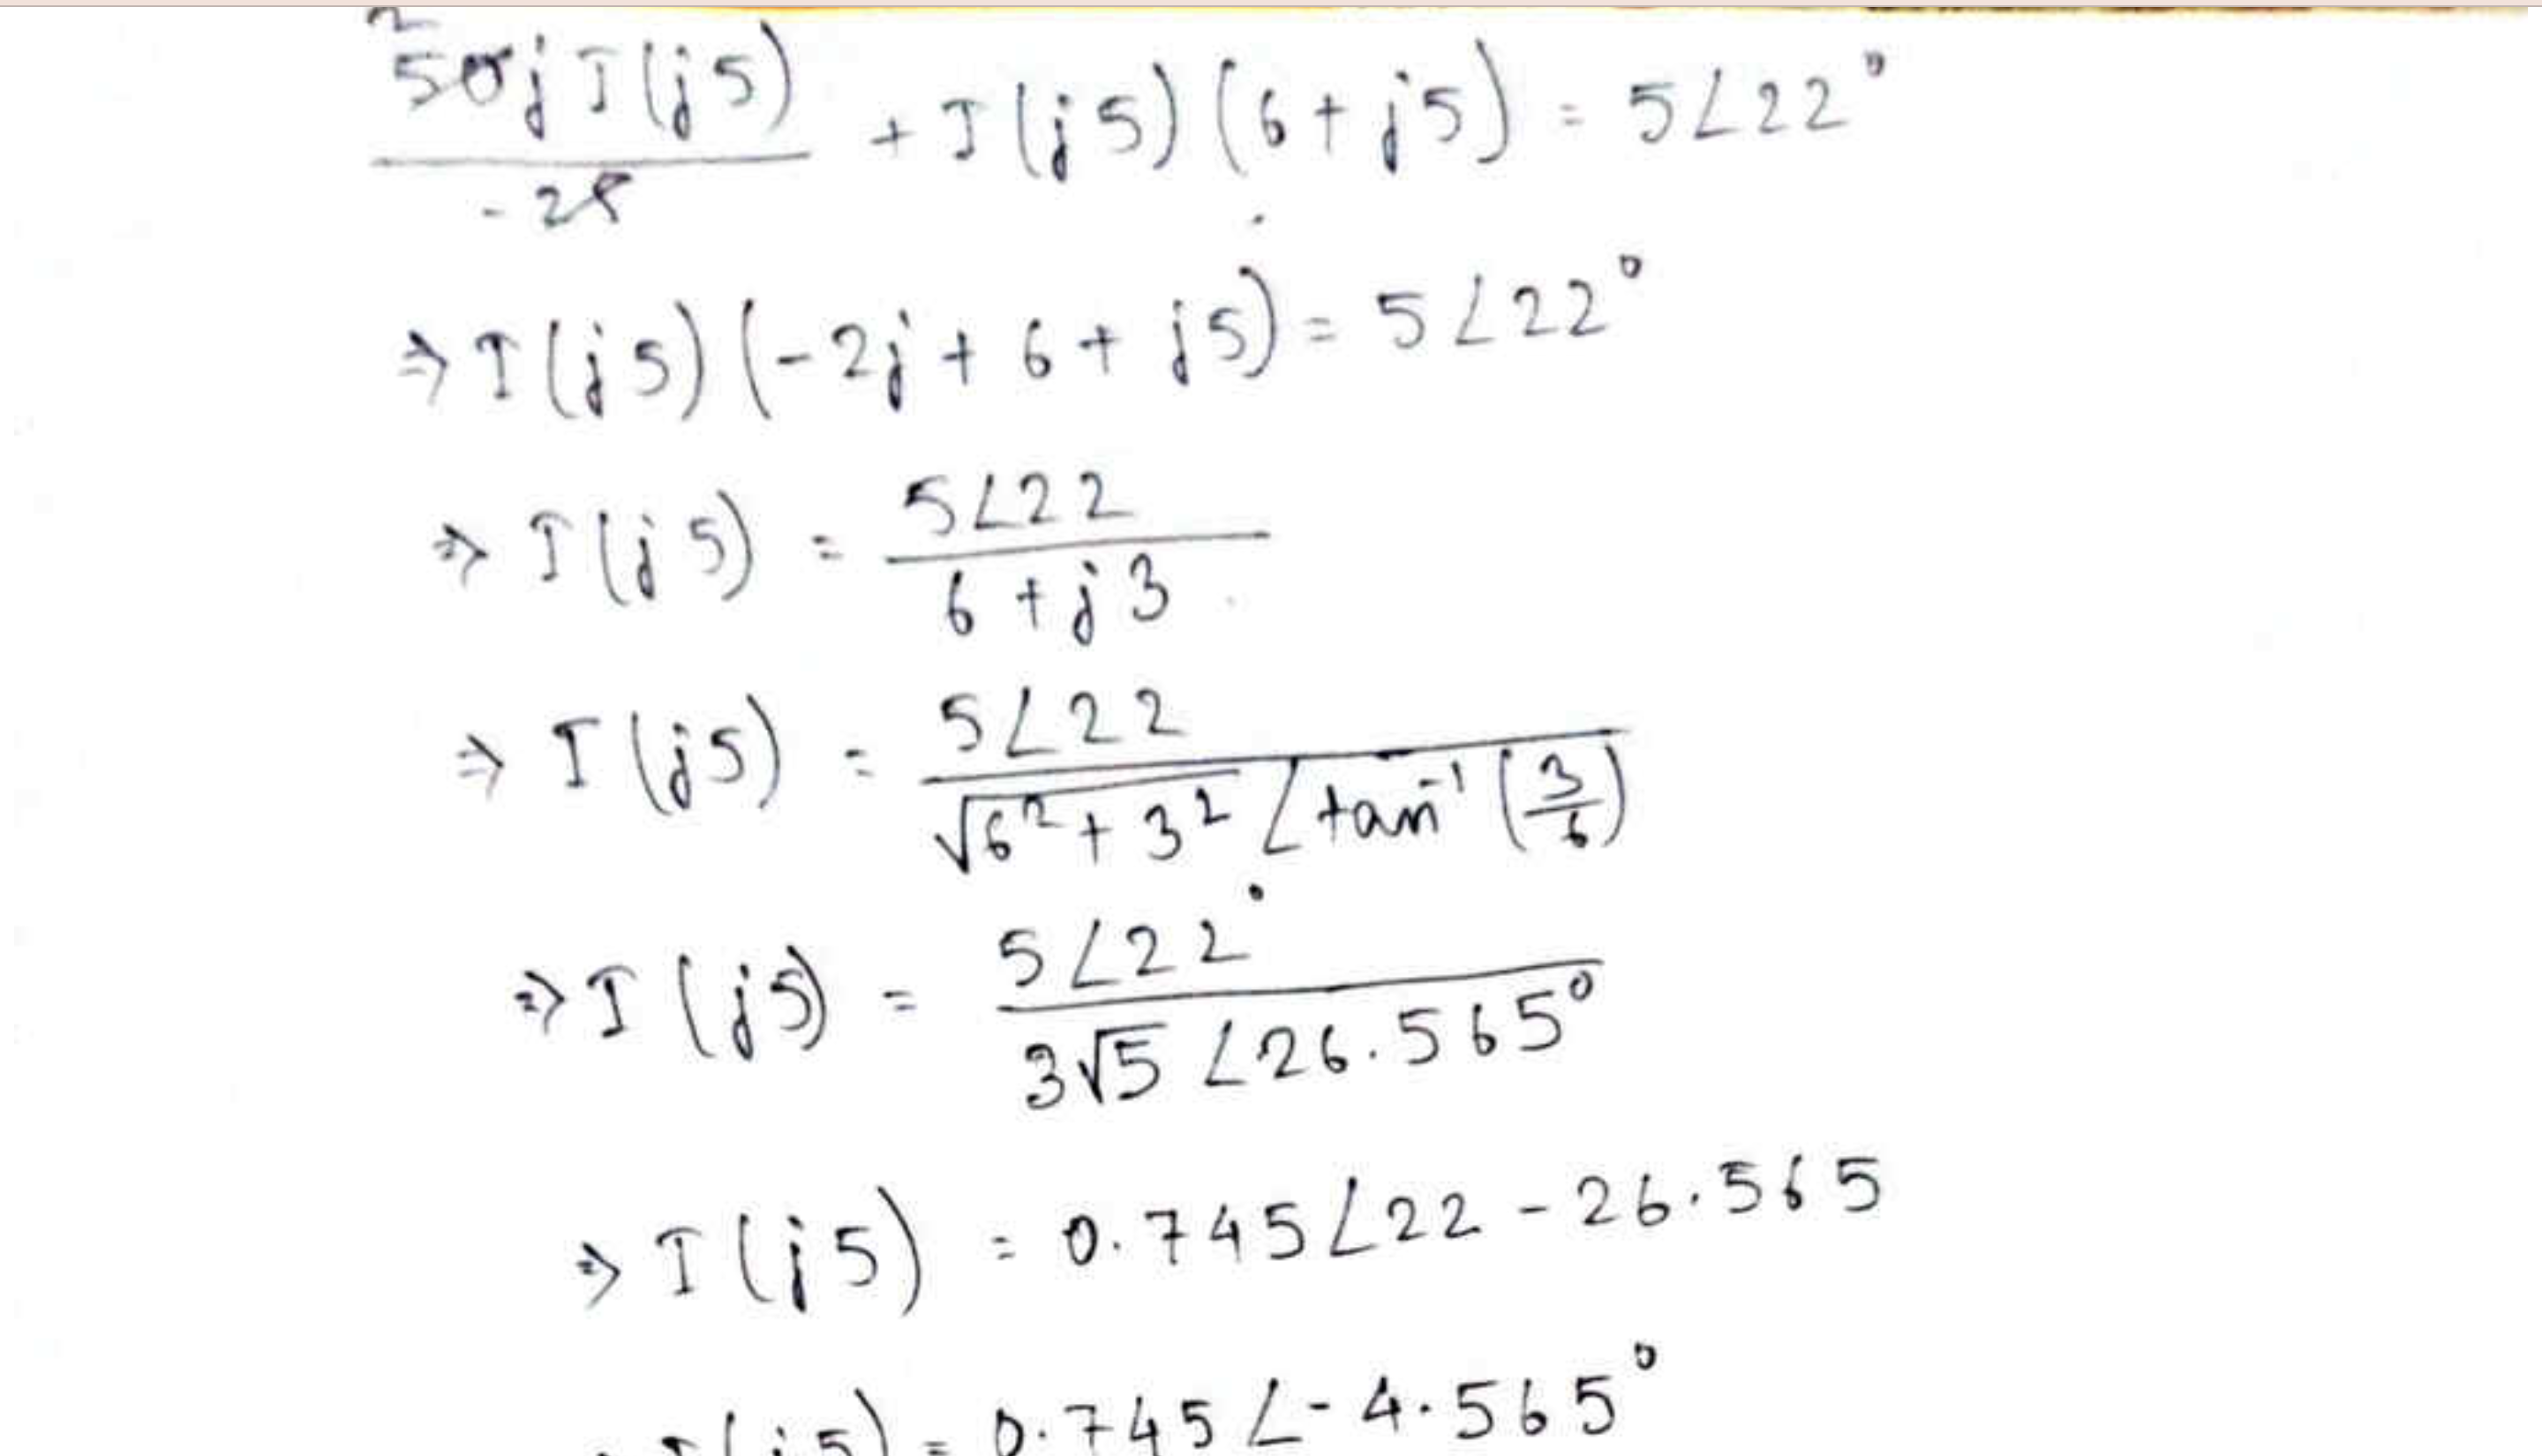 2
50j I(j5) / -25 + I(j5)(6+j5) = 5∠22°
⇒ I(j5)(-2j + 6 + j5) = 5∠22°
⇒ I(j5) = 5∠22 / 6+j3
⇒ I(j5) = 5∠22 / √6²+3² ∠tan⁻¹(3/6)
⇒ I(j5) = 5∠22° / 3√5 ∠26.565°
⇒ I(j5) = 0.745∠22-26.565
I(j5) = 0.745∠-4.565°